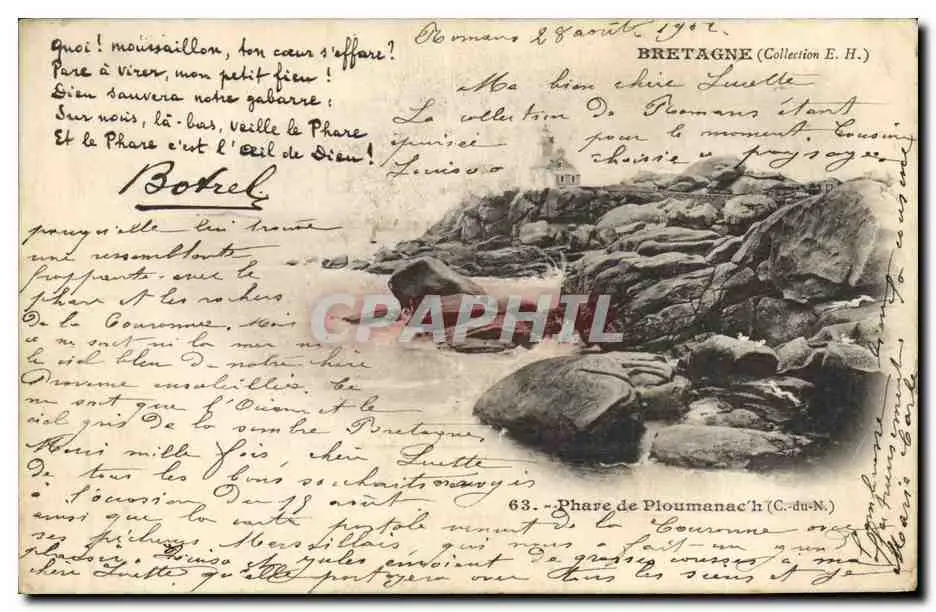 Quoi! moussaillon, ton cœur s'effare?
Pare à virer, mon petit fieu!
Dieu sauvera notre gabarre;
Sur nous, là-bas, veille le Phare
Et le Phare c'est l'Œil de Dieu!
Botrel
Romans 28 août 1902.
BRETAGNE (Collection E. H.)
Ma bien chère Lucette
La collection de Romans étant
épuisée pour le moment Cousine
Louise choisie paysage
pourqu'elle lui trouve
une ressemblante
frappante avec le
phare et les rochers
de la Couronne. Mais
ce ne sont ni la mer ni
le ciel bleu de notre chère
Provence ensoleillée. Ce
ne sont que l'Océan et le
ciel gris de la sombre Bretagne.
Merci mille fois, chère Lucette
de tous les bons souhaits envoyés
à l'occasion du 15 août
ainsi que la carte postale venant de la Couronne avec
ses pêcheurs Marseillais, qui nous a fait un grand
plaisir. Louise et envoient de grosses caresses à ma
chère Lucette qu'elle portera avec tous les siens et je
affectueusement
Marie
CPAPHIL
63. - Phare de Ploumanac'h (C.-du-N.)